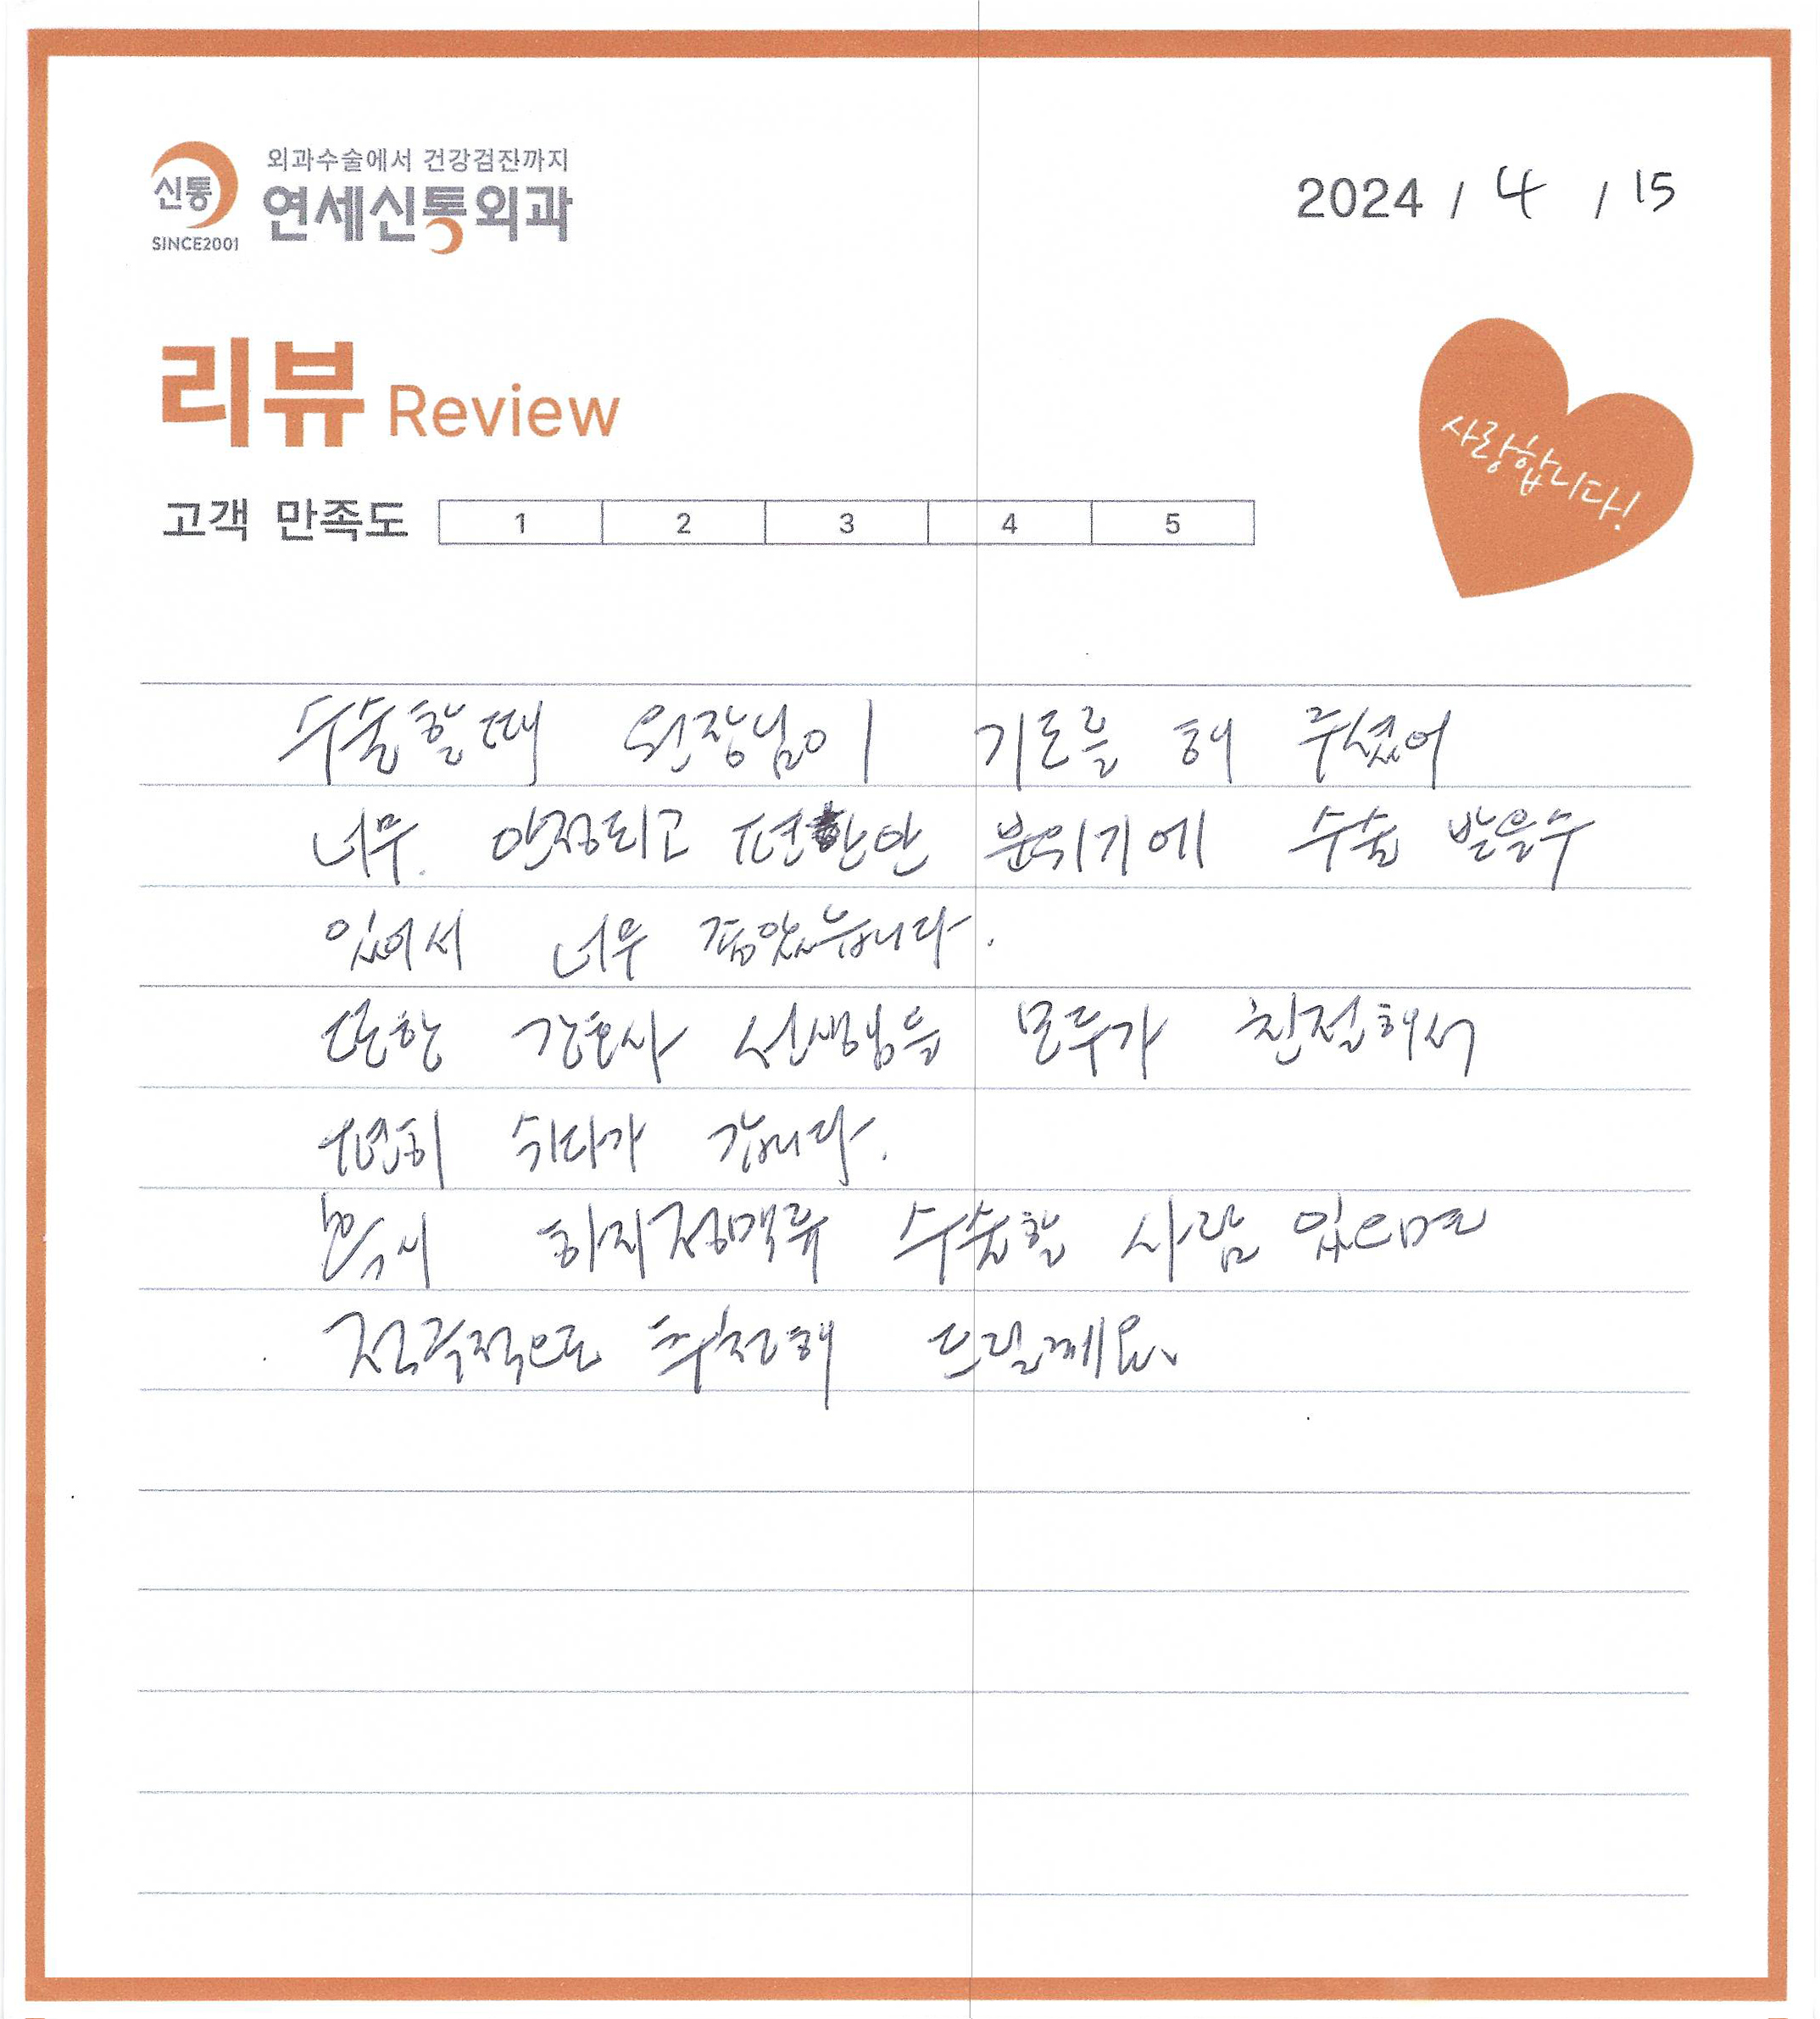 외과수술에서 건강검진까지
신통
연세신통외과
SINCE2001
2024 / 4 / 15
리뷰 Review
사랑합니다!
고객 만족도 1 2 3 4 5
수술할때 원장님이 기도를 해 주셨어
너무 안정되고 편안 분위기에 수술 받을수
있어서 너무 좋았습니다.
또한 간호사 선생님들 모두가 친절해서
편히 쉬다가 갑니다.
혹시 하지정맥류 수술할 사람 있으면
적극적으로 추천해 드릴께요.